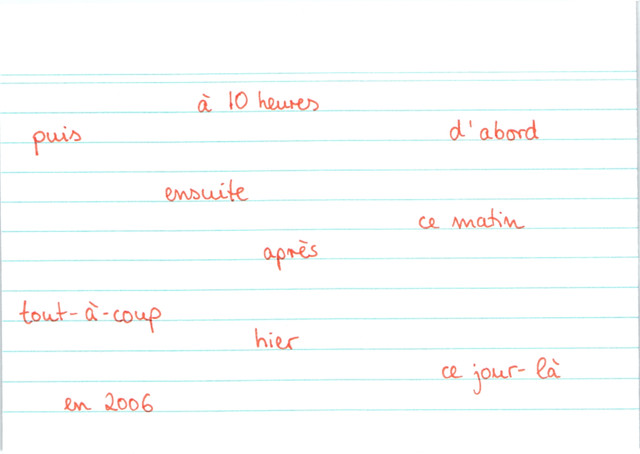 à 10 heures
puis
d'abord
ensuite
ce matin
après
tout-à-coup
hier
ce jour-là
en 2006